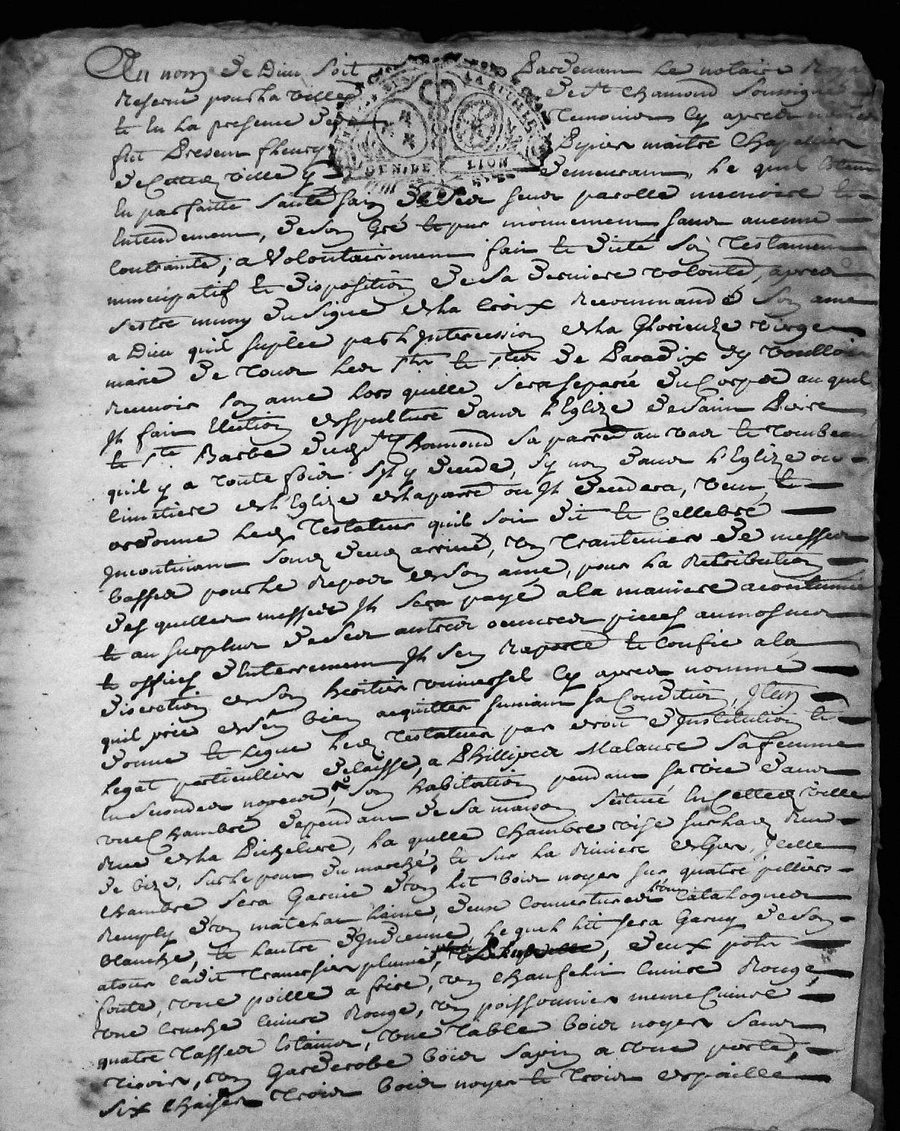 Au nom de Dieu soit Pardevant le notaire Royal
Reservé pour la ville de St Chamond soussigné
et en la presence des temoins cy apres nommés
fut present fleury Pipier maitre Chapellier
de cette ville y demeurant, le quel etant
en parfaitte santé de ses sens parolle memoire et
entendement, de son gré et pur mouvement sans aucune
contrainte, a volontairement fait et dicté son testament
nuncupatif et disposition de sa derniere volonté, apres
s'estre muny du signe de la croix recommandé son ame
a Dieu quil suplie par l'Intercession de la Glorieuze vierge
marie de tous les sts et stes de Paradix dy voulloir
recevoir son ame lors quelle sera separée du corps au quel
Il fait Election de sepulture dans l'Eglize de saint Pierre
et ste Barbe dudt st Chamond sa paroisse au vas et tombeau
quil y a toute fois s'il y decede, sy non dans l'Eglize ou
cimetiere de l'Eglize de la paroisse ou Il decedera, veut et
ordonne ledt Testateur quil soit dit et cellebré
Incontinant son deces arrivé, un trantenier de messes
basses pour le repos de son ame, pour la retribution
des quelles messes Il sera payé a la maniere acoutumée
et au surplus de ses autres oeuvres pieuses aumosnes
et offices d'Interrement Il s'en raporte et confie a la
discretion de son heritier universel cy apres nommé
quil prie de s'en bien acquitter suivant sa condition, Item
donne et legue ledt Testateur par droit d'Institution et
legat particullier delaisse, a Phillipes Malaure sa femme
en secondes nopces, son habitation pendant sa vie dans
une chambre dependant de sa maison scituée en cette ville
rue de la , la quelle chambre vise sur lad. rue
de bize, sur le pont du marché, et sur la riviere de Gier, Icelle
chambre sera Garnie d'un lit bois noyer sur quatre pilliers
remply d'un matelat laine, deux couvertures d'une Catalogne
blanche, et l'autre d'Indienne, le quel lit sera Garny de son
atour ladit traversier plume, deux pots
fonte, une poille a frire, un chaufelit cuivre Rouge,
une cruche cuivre Rouge, un poissonnier meme cuivre
quatre tasses estaing, une table bois noyer sans
tiroir, un Garderobe bois sapin a une porte,
six chaises trois bois noyer et trois de paille
GENER DE LION